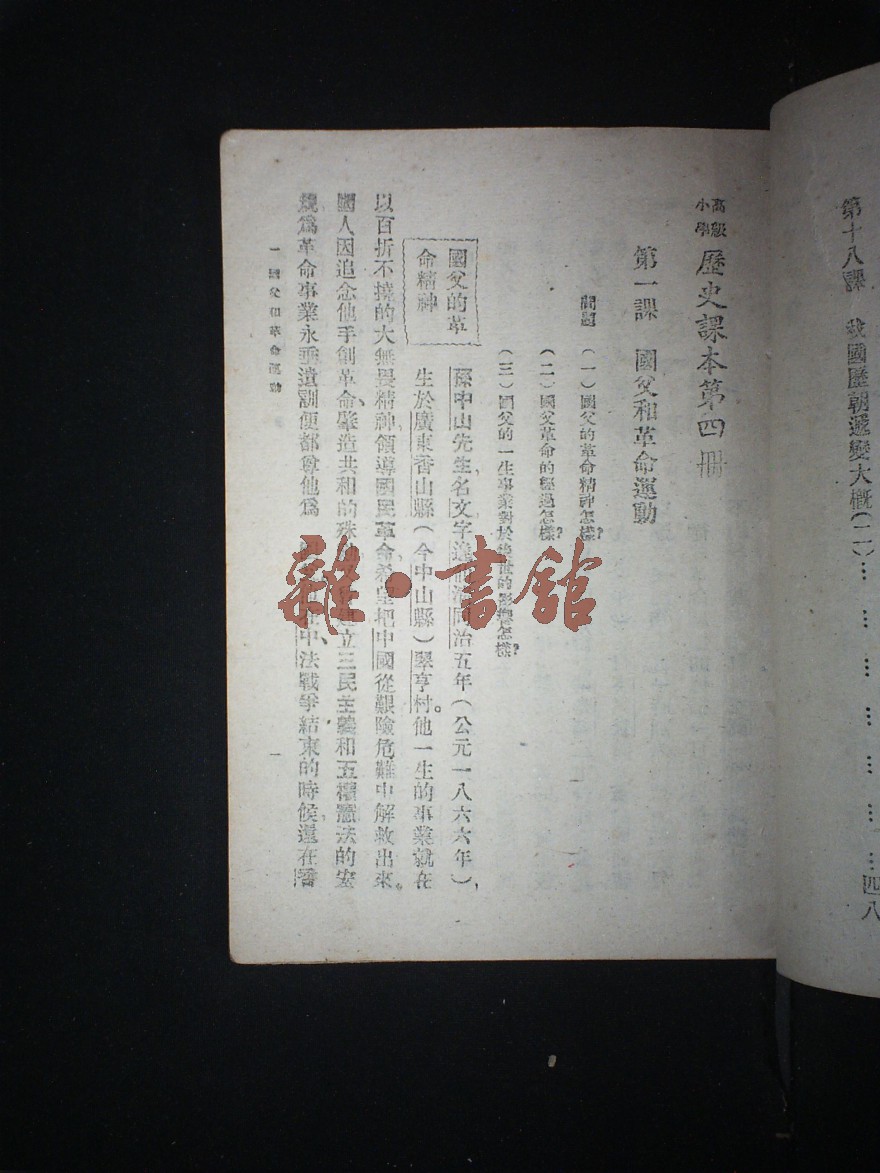 第十八課　我國歷朝遞變大概(二)… … … … … … …四八
高級小學 歷史課本第四冊
第一課　國父和革命運動
問題　(一)國父的革命精神怎樣?
(二)國父革命的經過怎樣?
(三)國父的一生事業對於後世的影響怎樣?
國父的革命精神
孫中山先生,名文,字逸仙,清同治五年(公元一八六六年),
生於廣東香山縣(今中山縣)翠亨村。他一生的事業就在
以百折不撓的大無畏精神,領導國民革命,希望把中國從艱險危難中解救出來。
國人因追念他手創革命、肇造共和的殊勳,建立三民主義和五權憲法的宏
規,為革命事業永垂遺訓,便都尊他為 在中、法戰爭結束的時候,還在香
一　國父和革命運動
一
雜·書館